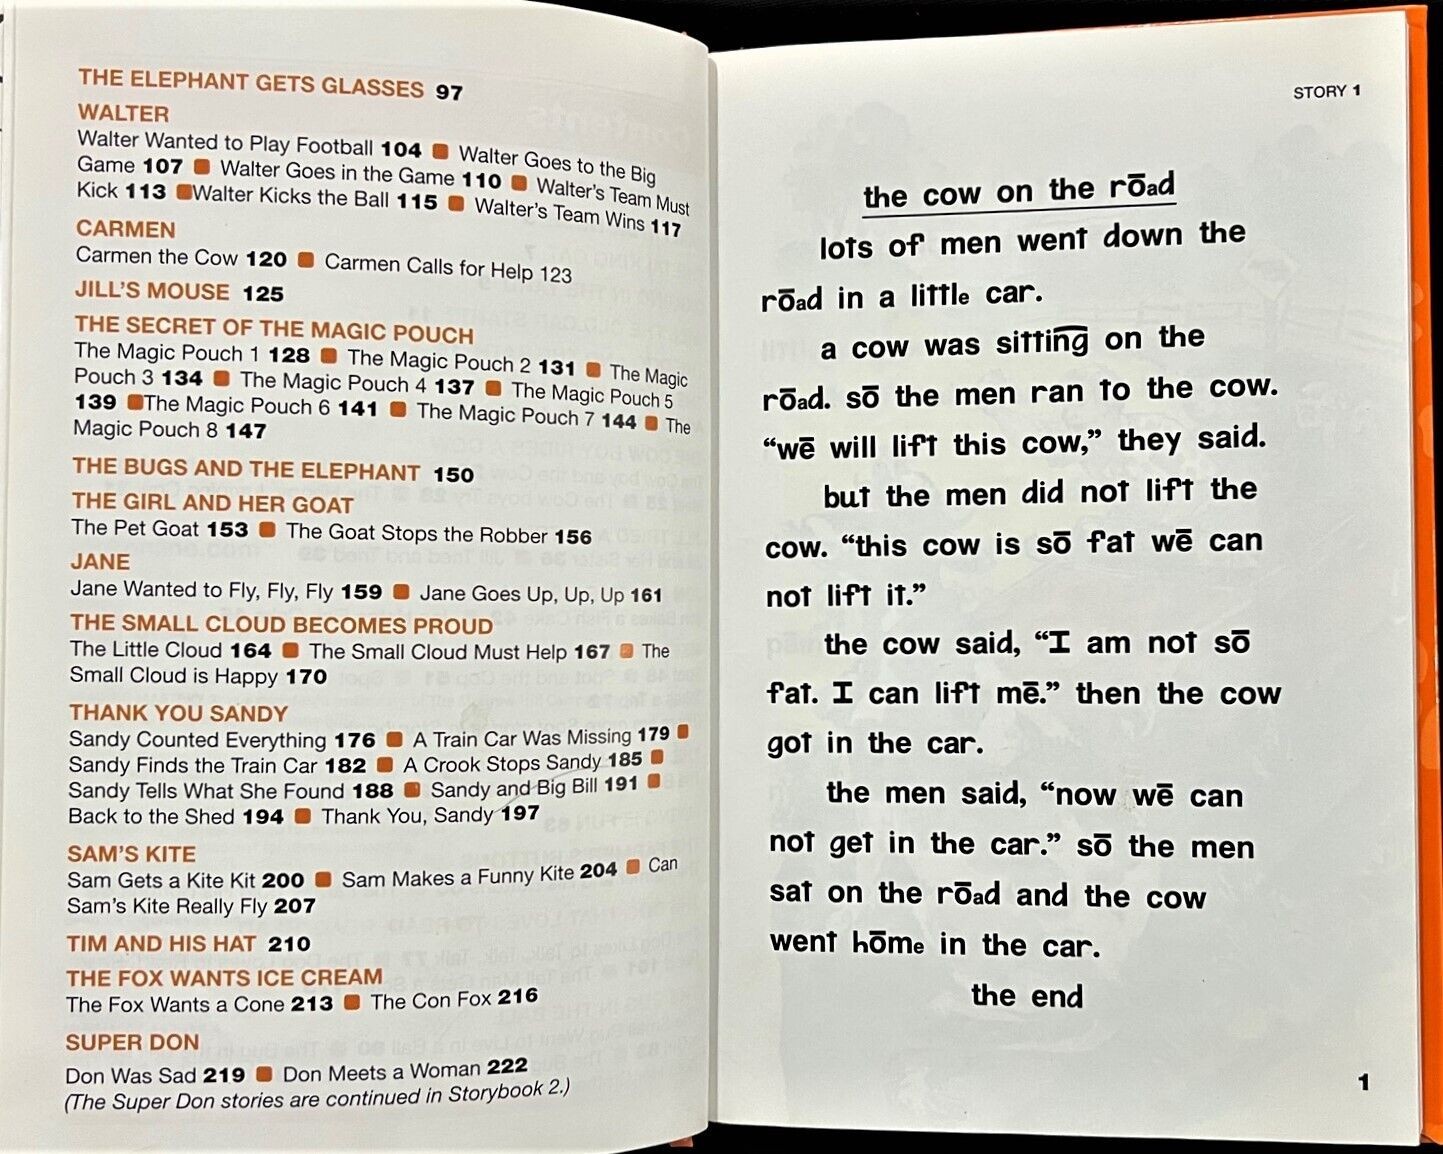 THE ELEPHANT GETS GLASSES 97
WALTER
Walter Wanted to Play Football 104 ■ Walter Goes to the Big
Game 107 ■ Walter Goes in the Game 110 ■ Walter's Team Must
Kick 113 ■Walter Kicks the Ball 115 ■ Walter's Team Wins 117
CARMEN
Carmen the Cow 120 ■ Carmen Calls for Help 123
JILL'S MOUSE 125
THE SECRET OF THE MAGIC POUCH
The Magic Pouch 1 128 ■ The Magic Pouch 2 131 ■ The Magic
Pouch 3 134 ■ The Magic Pouch 4 137 ■ The Magic Pouch 5
139 ■The Magic Pouch 6 141 ■ The Magic Pouch 7 144 ■ The
Magic Pouch 8 147
THE BUGS AND THE ELEPHANT 150
THE GIRL AND HER GOAT
The Pet Goat 153 ■ The Goat Stops the Robber 156
JANE
Jane Wanted to Fly, Fly, Fly 159 ■ Jane Goes Up, Up, Up 161
THE SMALL CLOUD BECOMES PROUD
The Little Cloud 164 ■ The Small Cloud Must Help 167 ■ The
Small Cloud is Happy 170
THANK YOU SANDY
Sandy Counted Everything 176 ■ A Train Car Was Missing 179 ■
Sandy Finds the Train Car 182 ■ A Crook Stops Sandy 185 ■
Sandy Tells What She Found 188 ■ Sandy and Big Bill 191 ■
Back to the Shed 194 ■ Thank You, Sandy 197
SAM'S KITE
Sam Gets a Kite Kit 200 ■ Sam Makes a Funny Kite 204 ■ Can
Sam's Kite Really Fly 207
TIM AND HIS HAT 210
THE FOX WANTS ICE CREAM
The Fox Wants a Cone 213 ■ The Con Fox 216
SUPER DON
Don Was Sad 219 ■ Don Meets a Woman 222
(The Super Don stories are continued in Storybook 2.)
STORY 1
the cow on the rōad
lots of men went down the
rōad in a little car.
a cow was sitting on the
rōad. sō the men ran to the cow.
“wē will lift this cow,” they said.
but the men did not lift the
cow. “this cow is sō fat wē can
not lift it.”
the cow said, “I am not sō
fat. I can lift mē.” then the cow
got in the car.
the men said, “now wē can
not get in the car.” sō the men
sat on the rōad and the cow
went hōme in the car.
the end
1